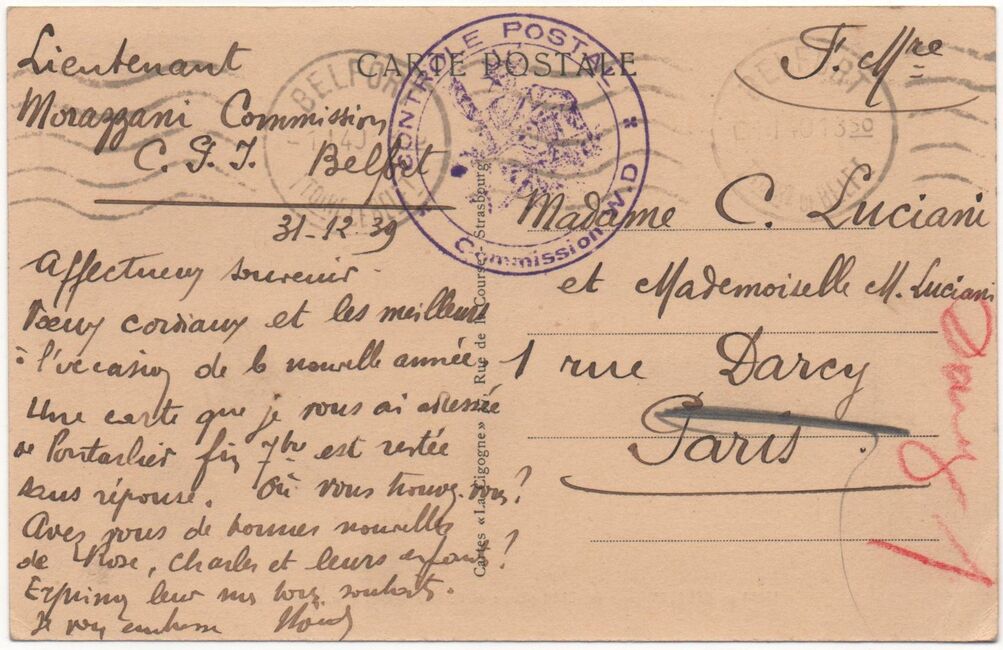 CARTE POSTALE
CONTRÔLE POSTAL
Commission W.D
BELFORT
BELFORT
Lieutenant
Morazzani Commission
C. F. I. Belfort
31-12-39
Affectueux souvenir.
Vœux cordiaux et les meilleurs
à l'occasion de la nouvelle année
Une carte que je vous ai adressée
de Pontarlier fin 7bre est restée
sans réponse. Où vous trouvez-vous?
Avez vous de bonnes nouvelles
de Rose, Charles et leurs enfants?
Exprimez leur mes bons souhaits.
Je vous embrasse
Cartes « La Cigogne » Rue de la Course, Strasbourg
F. Mre
Madame C. Luciani
et Mademoiselle M. Luciani
1 rue Darcy
Paris.